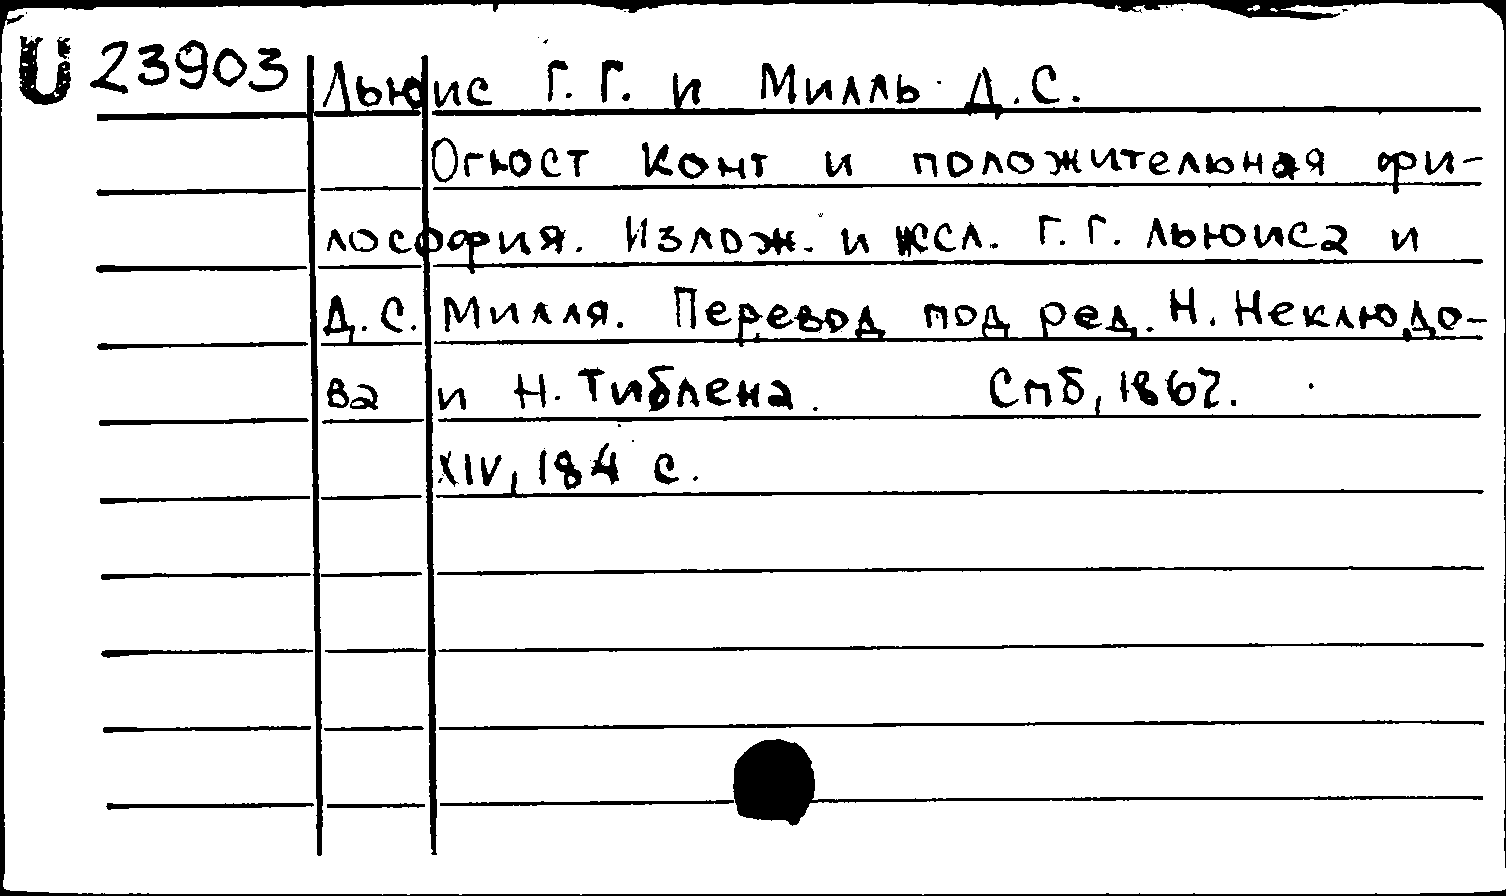 U 23903 Льюис Г. Г. и Милль Д. С.
Огюст Конт и положительная фи-
лософия. Излож. и иссл. Г. Г. Льюиса и
Д. С. Милля. Перевод под ред. Н. Неклюдо-
ва и Н. Тиблена. Спб, 1867.
XIV, 184 с.